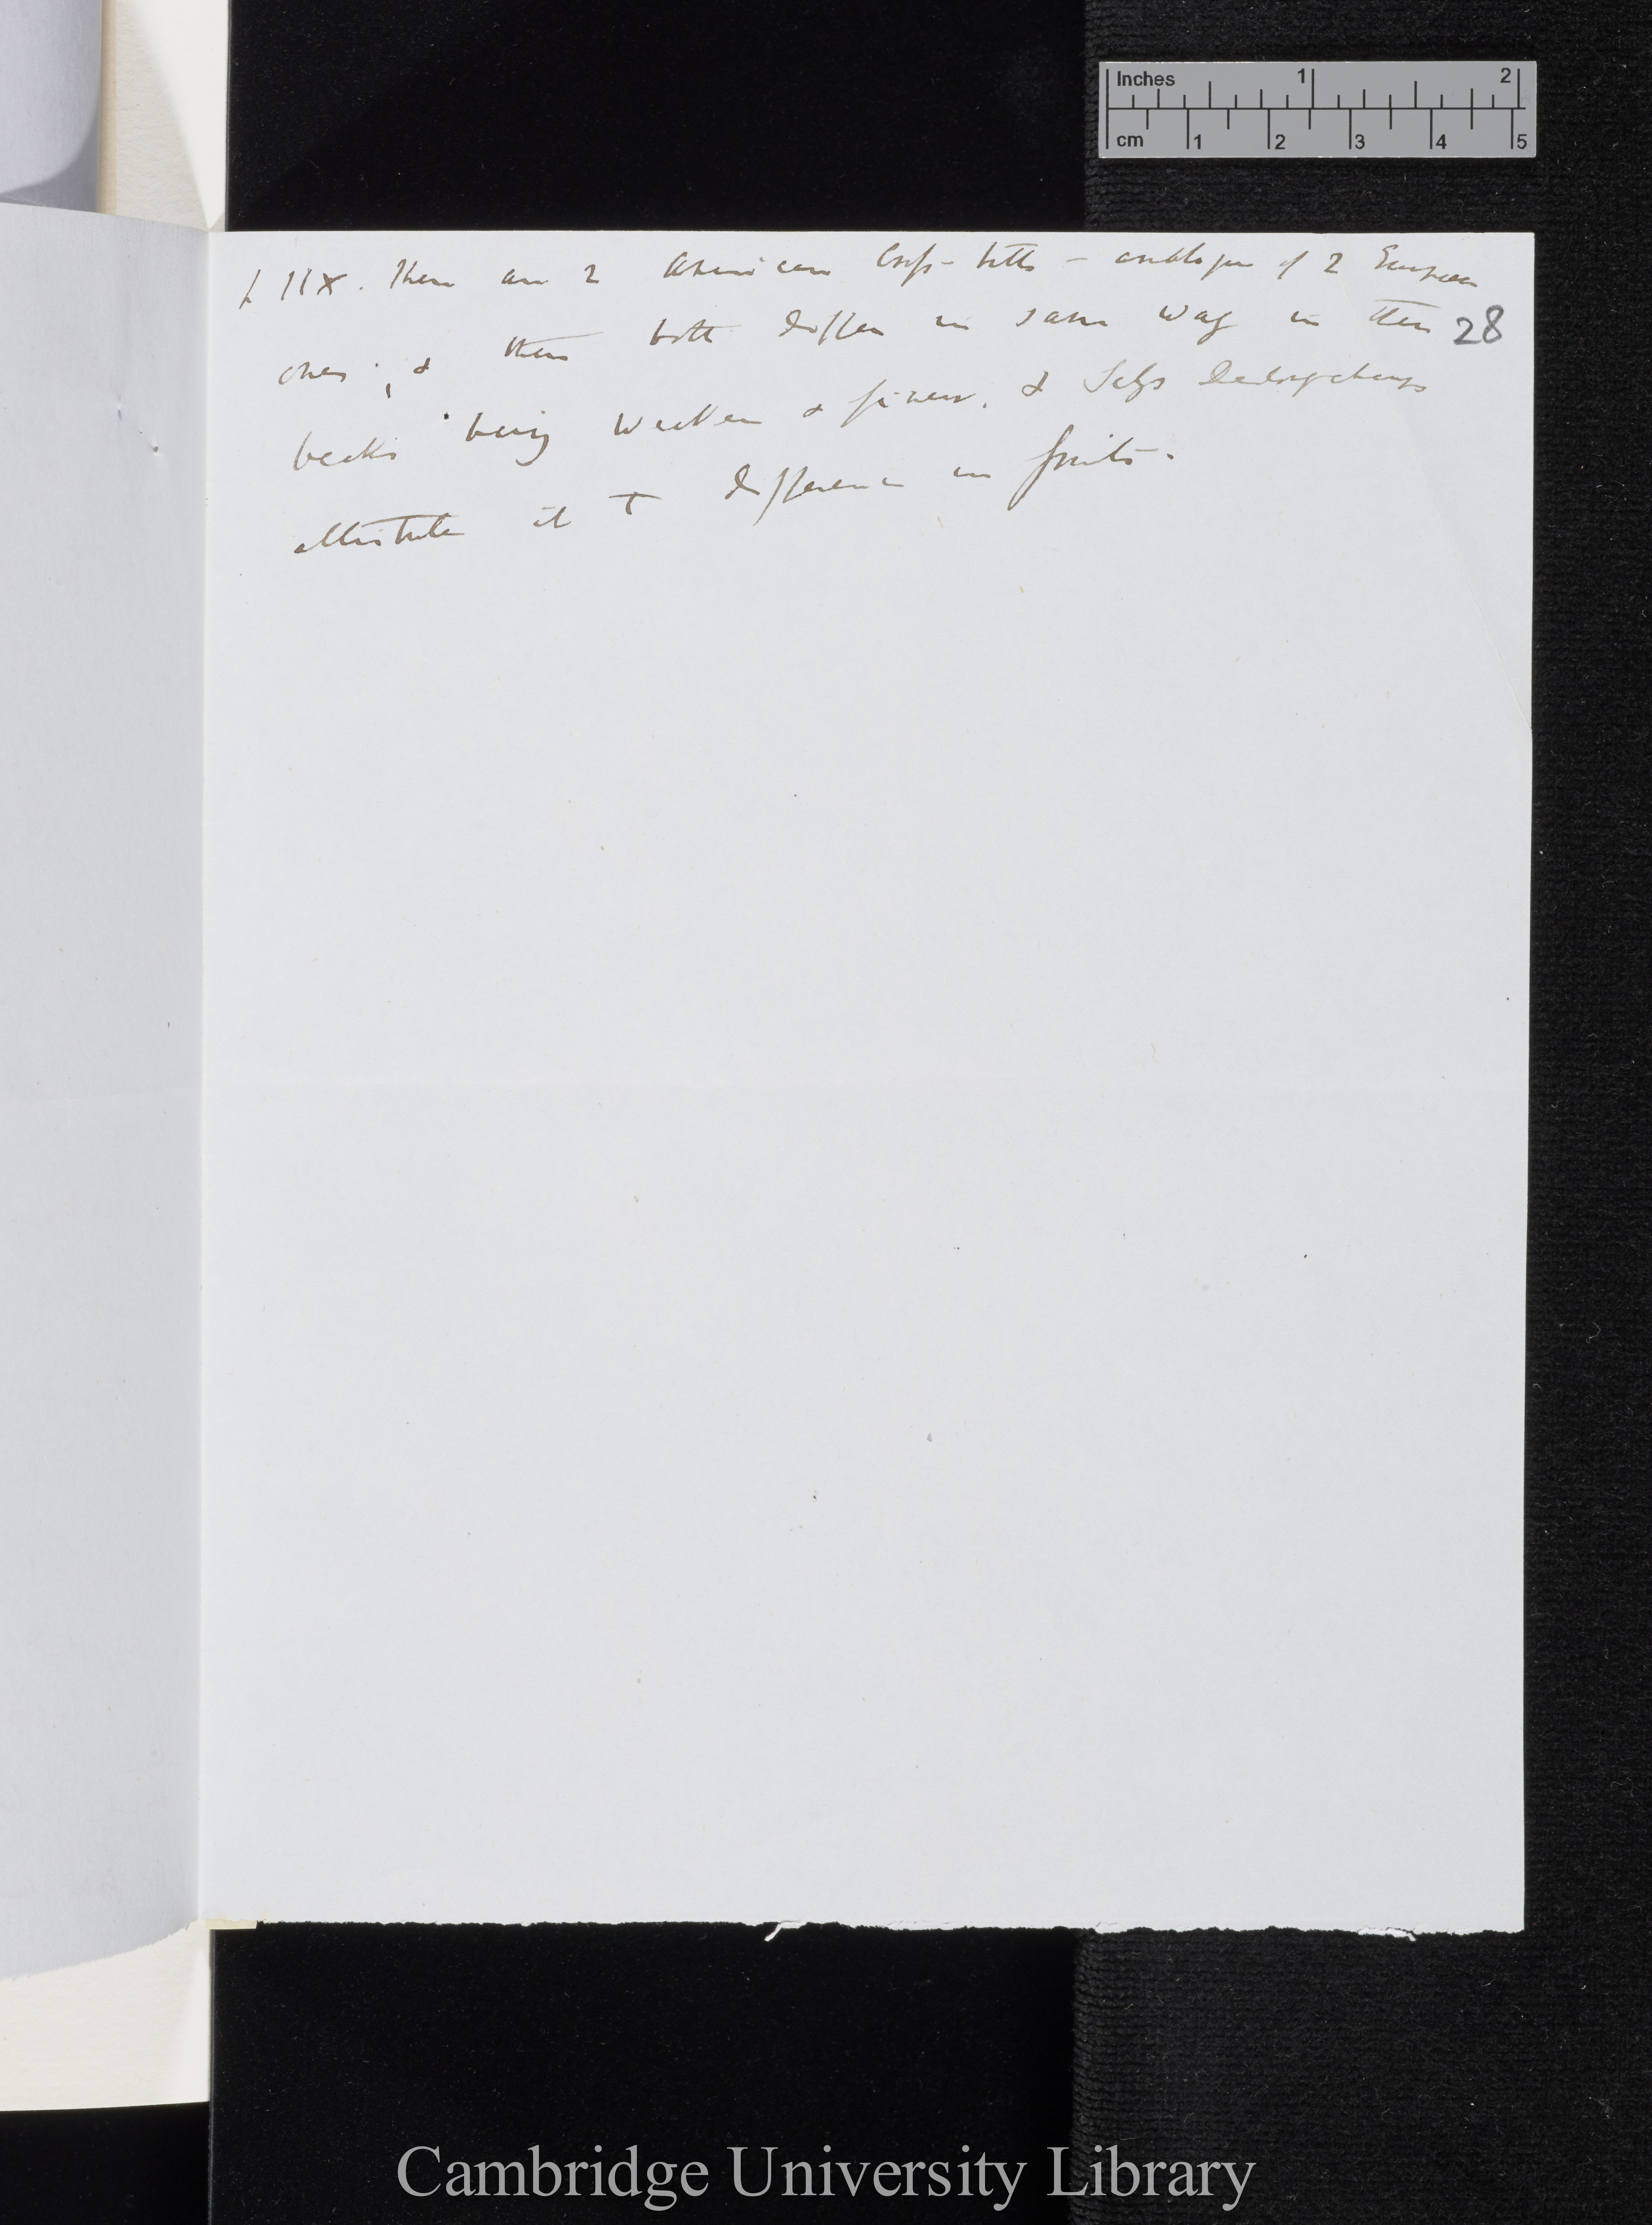 Inches 1 2
cm 1 2 3 4 5
p 11x. There are 2 American Cross-bills - analogues of 2 European
ones; & these both differ in same way in their 28
beaks being weaker & finer, & Selys Delongchamps
attributes it to difference in fruits.
Cambridge University Library